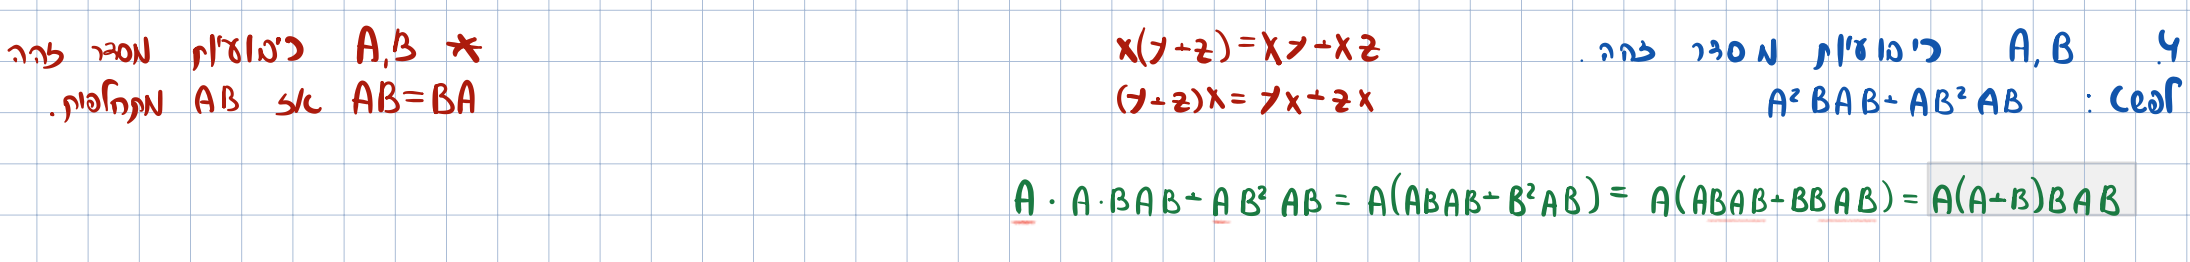 4. A, B ריבועיות מסדר זהה.
לפשט: A² BAB + AB² AB
x(y+z) = xy + xz
(y+z)x = yx + zx
* A, B ריבועיות מסדר זהה
AB = BA אז AB מתחלפות.
A · A · BAB + AB² AB = A(ABAB + B² AB) = A(ABAB + BBAB) = A(A+B)BAB